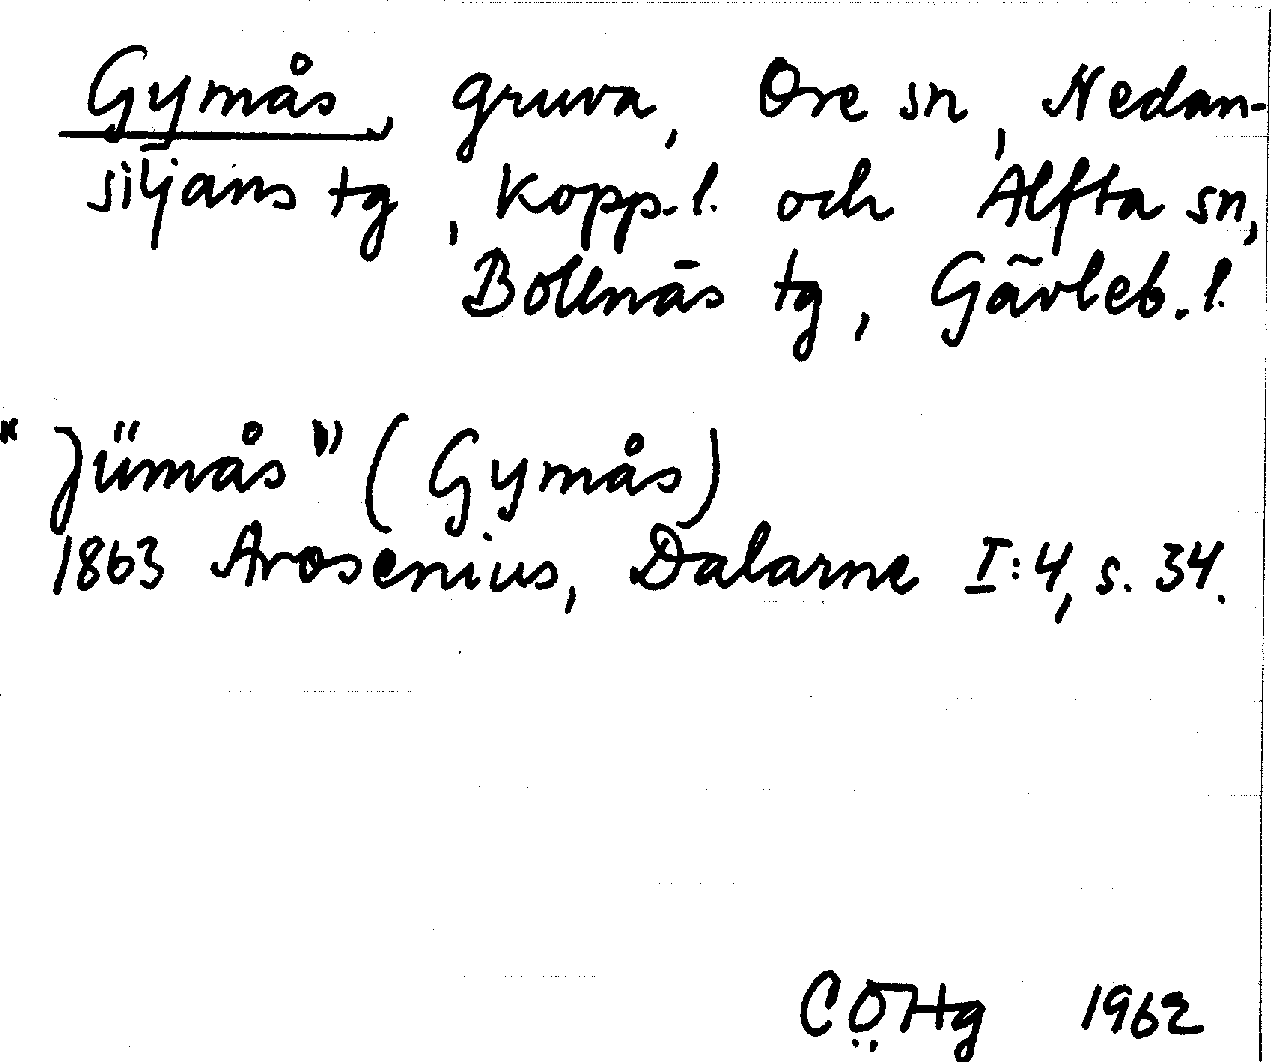 Gymås, gruva, Ore sn, Nedan-
siljans tg, Kopp. l. och Alfta sn,
Bollnäs tg, Gävleb. l.
"Jümås" (Gymås)
1863 Arosenius, Dalarne I:4, s. 34.
CÖHg 1962